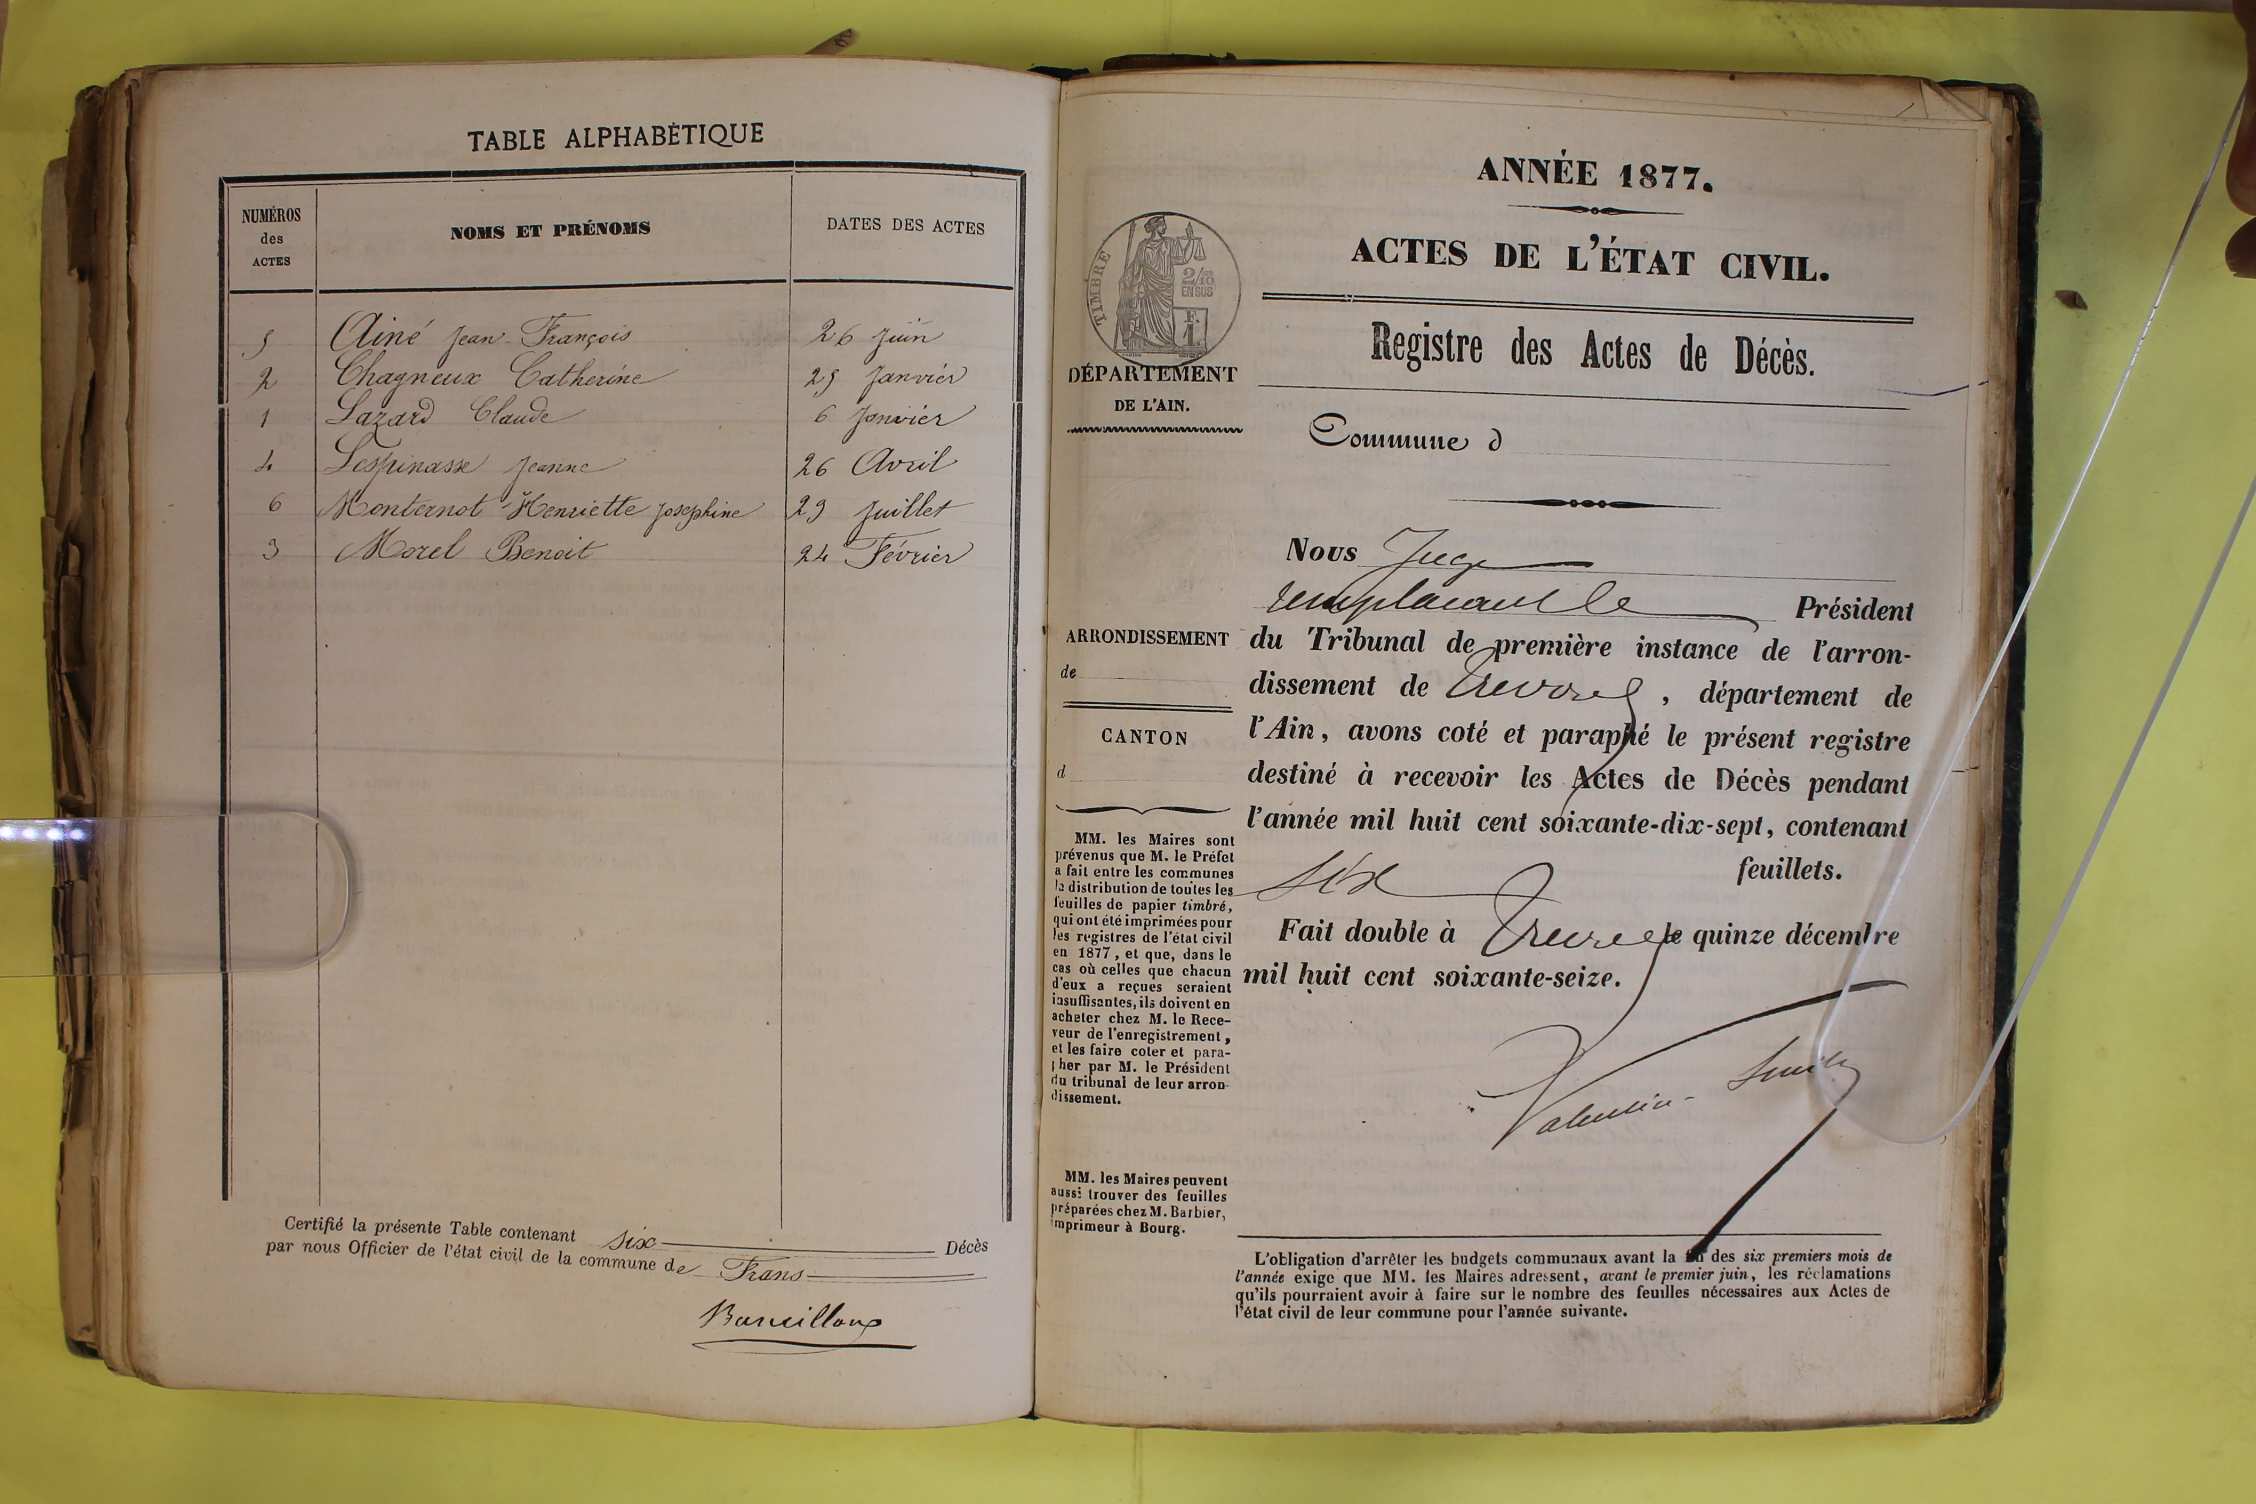 TABLE ALPHABÉTIQUE
NUMÉROS des ACTES
NOMS ET PRÉNOMS
DATES DES ACTES
5 Ainé Jean-François 26 Juin
2 Chagneux Catherine 25 Janvier
1 Lazard Claude 6 Janvier
4 Lespinasse Jeanne 26 Avril
6 Monternot Henriette Josephine 29 Juillet
3 Morel Benoit 24 Février
Certifié la présente Table contenant six Décès
par nous Officier de l'état civil de la commune de Frans
TIMBRE
2/10 EN SUS
F. 1
DÉPARTEMENT
DE L'AIN.
ARRONDISSEMENT
de
CANTON
d
MM. les Maires sont
prévenus que M. le Préfet
a fait entre les communes
la distribution de toutes les
feuilles de papier timbré,
qui ont été imprimées pour
les registres de l'état civil
en 1877, et que, dans le
cas où celles que chacun
d'eux a reçues seraient
insuffisantes, ils doivent en
acheter chez M. le Rece-
veur de l'enregistrement,
et les faire coter et para-
pher par M. le Président
du tribunal de leur arron-
dissement.
MM. les Maires peuvent
aussi trouver des feuilles
préparées chez M. Barbier,
imprimeur à Bourg.
ANNÉE 1877.
ACTES DE L'ÉTAT CIVIL.
Registre des Actes de Décès.
Commune d
Nous Juge
remplaçant le Président
du Tribunal de première instance de l'arron-
dissement de Trévoux, département de
l'Ain, avons coté et paraphé le présent registre
destiné à recevoir les Actes de Décès pendant
l'année mil huit cent soixante-dix-sept, contenant
six feuillets.
Fait double à Trévoux le quinze décembre
mil huit cent soixante-seize.
Valentin-Smith
L'obligation d'arrêter les budgets communaux avant la fin des six premiers mois de
l'année exige que MM. les Maires adressent, avant le premier juin, les réclamations
qu'ils pourraient avoir à faire sur le nombre des feuilles nécessaires aux Actes de
l'état civil de leur commune pour l'année suivante.